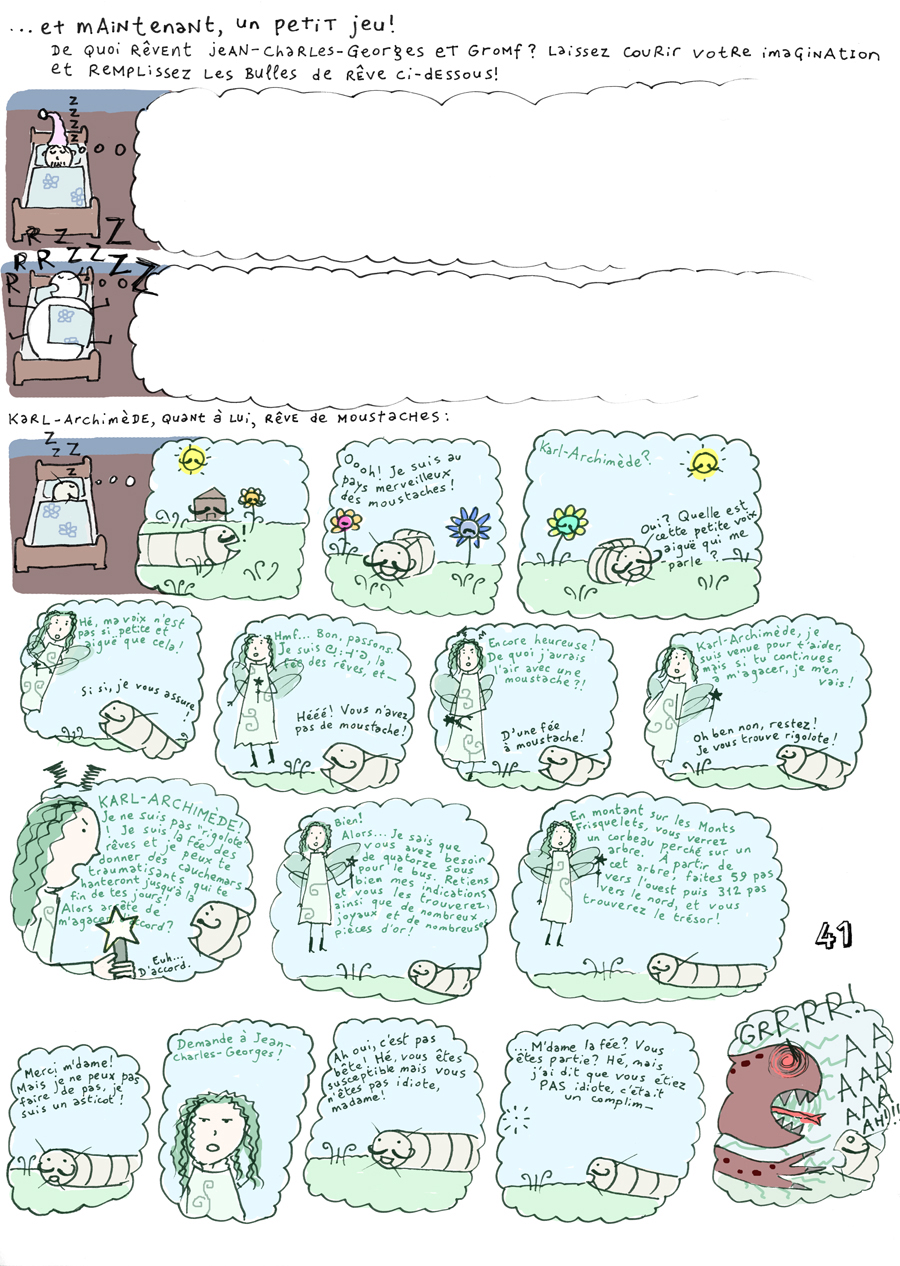 ...et maintenant, un petit jeu!
De quoi rêvent Jean-Charles-Georges et Gromf? Laissez courir votre imagination
et remplissez les bulles de rêve ci-dessous!
Z
Z
Z
Z
R Z Z
R R Z Z Z Z
R
Karl-Archimède, quant à lui, rêve de moustaches:
Z
Z Z
Z
!
Oooh! Je suis au
pays merveilleux
des moustaches!
Karl-Archimède?
Oui? Quelle est
cette petite voix
aiguë qui me
parle?
Hé, ma voix n'est
pas si petite et
aiguë que cela!
Si si, je vous assure
!
Hmf... Bon, passons.
Je suis la
fée des rêves, et—
Hééé! Vous n'avez
pas de moustache!
Encore heureuse!
De quoi j'aurais
l'air avec une
moustache?!
D'une fée
à moustache!
Karl-Archimède, je
suis venue pour t'aider,
mais si tu continues
à m'agacer, je m'en
vais!
Oh ben non, restez!
Je vous trouve rigolote!
KARL-ARCHIMÈDE!
Je ne suis pas "rigolote"
! Je suis la fée des
rêves et je peux te
donner des cauchemars
traumatisants qui te
hanteront jusqu'à la
fin de tes jours!
Alors arrête de
m'agacer, d'accord?
Euh...
D'accord.
Bien!
Alors... Je sais que
vous avez besoin
de quatorze sous
pour le bus. Retiens
bien mes indications
et vous les trouverez,
ainsi que de nombreux
joyaux et de nombreuses
pièces d'or!
En montant sur les Monts
Frisquelets, vous verrez
un corbeau perché sur un
arbre. À partir de
cet arbre, faites 59 pas
vers l'ouest puis 312 pas
vers le nord, et vous
trouverez le trésor!
41
Merci m'dame!
Mais je ne peux pas
faire de pas, je
suis un asticot!
Demande à Jean-
Charles-Georges!
Ah oui, c'est pas
bête! Hé, vous êtes
susceptible mais vous
n'êtes pas idiote,
madame!
...M'dame la fée? Vous
êtes partie? Hé, mais
j'ai dit que vous étiez
PAS idiote, c'était
un complim—
GRRRR!
A A
AAA
AAA
AH!!!